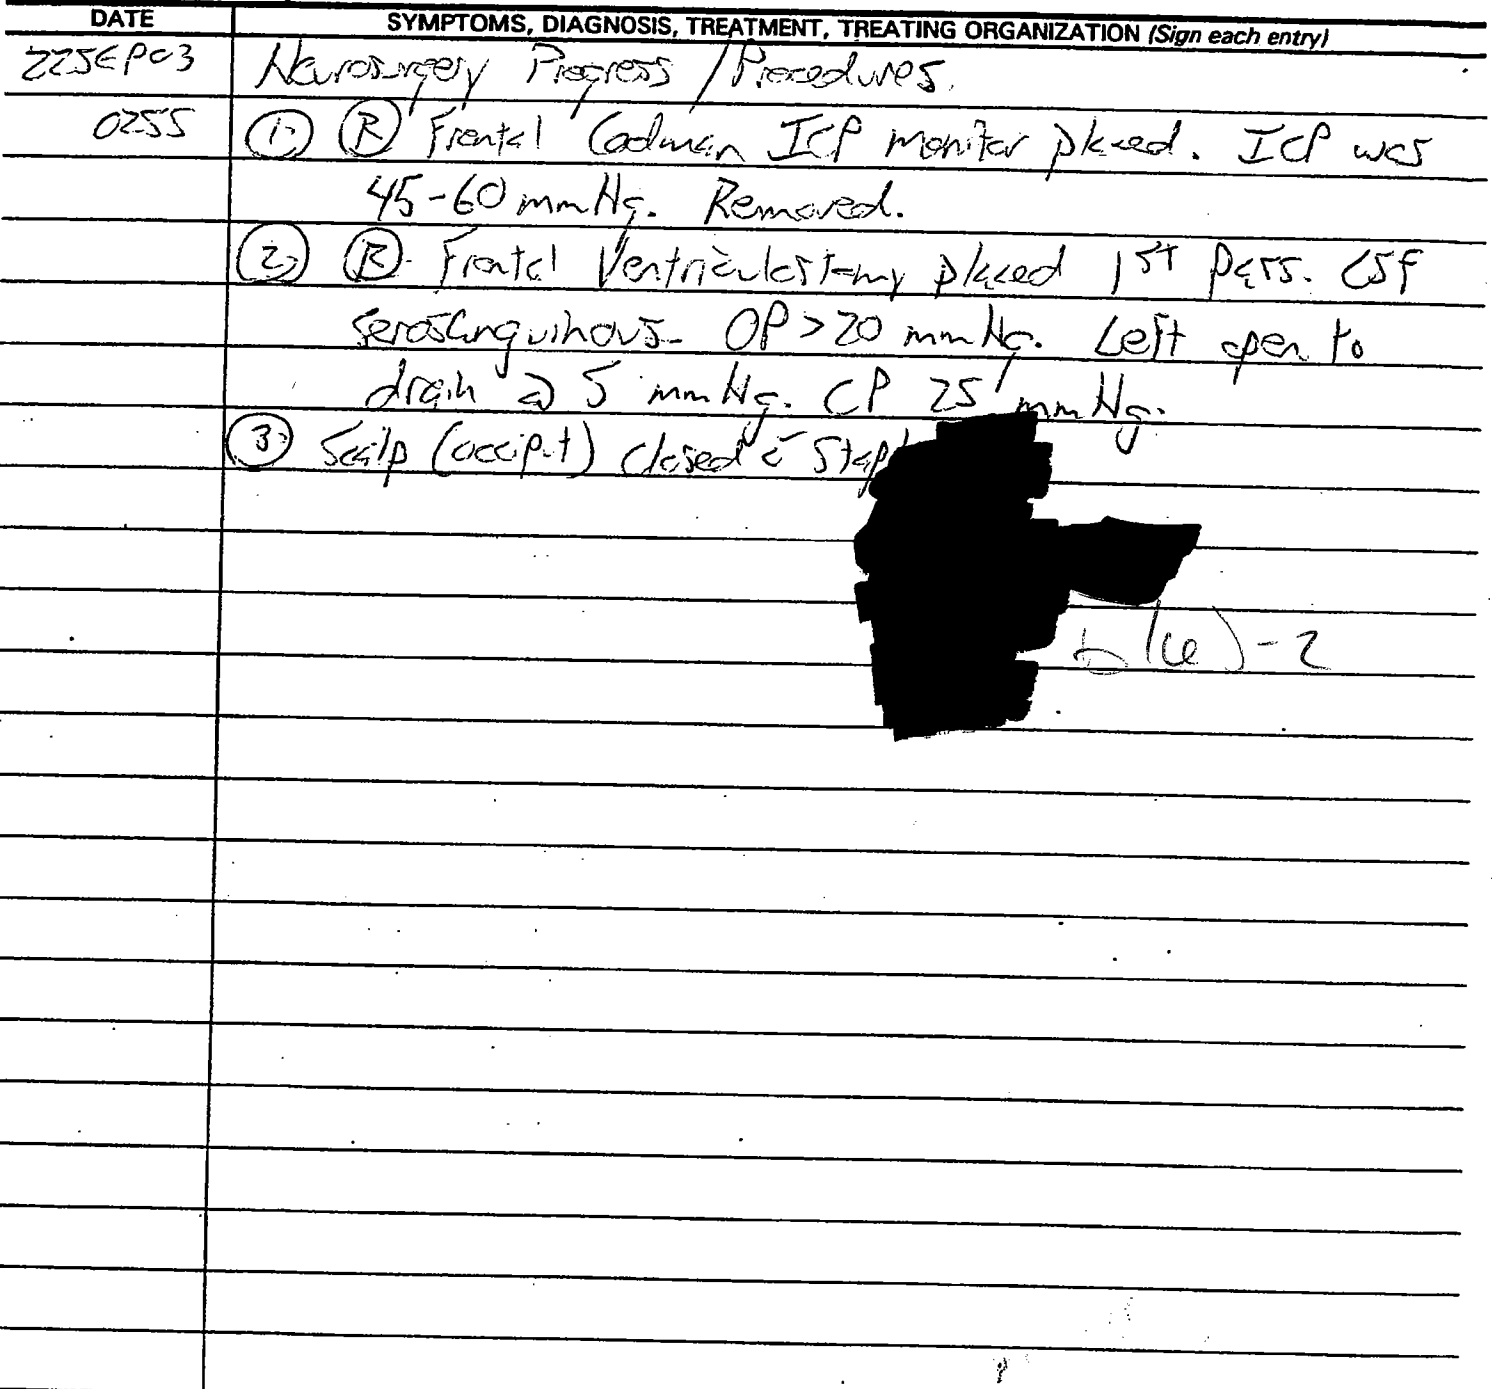 DATE SYMPTOMS, DIAGNOSIS, TREATMENT, TREATING ORGANIZATION (Sign each entry)
22SEP03 Neurosurgery Progress / Procedures.
0255 1. R Frontal Codman ICP monitor placed. ICP was
45-60 mmHg. Removed.
2. R Frontal Ventriculostomy placed 1st pass. CSF
serosanguinous. OP > 20 mmHg. Left open to
drain @ 5 mmHg. CP 25 mmHg.
3. Scalp (occiput) closed c̄ Stap
b(6)-2